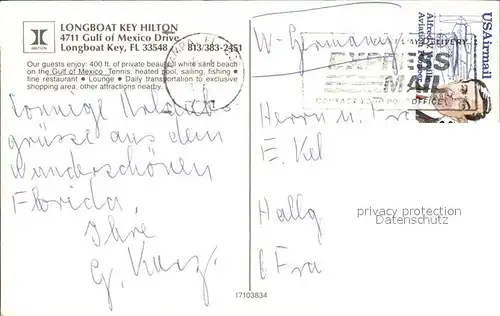 LONGBOAT KEY HILTON
4711 Gulf of Mexico Drive
Longboat Key, FL 33548 813-383-2451
HILTON
Our guests enjoy: 400 ft. of private beautiful white sand beach
on the Gulf of Mexico. Tennis, heated pool, sailing, fishing •
fine restaurant • Lounge • Daily transportation to exclusive
shopping area, other attractions nearby.
Sonnige Urlaubs
grüsse aus dem
wunderschönen
Florida,
Ihre
G. Kurz.
W-Germany
EXPRESS
MAIL
CONTACT YOUR POST OFFICE
USAirmail
Alfred V.
Aviation Pioneer
Herrn u. Fra
E. Kel
Hallg
6 Fra
privacy protection
Datenschutz
17103834